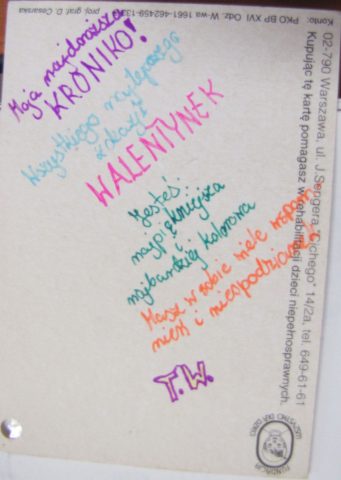 Moja najdroższa
KRONIKO!
Wszystkiego najlepszego
z okazji
WALENTYNEK
Jesteś...
najpiękniejsza
i
najbardziej kolorowa
Masz w sobie wiele wspom-
nień i niespodzianek
T.W.
02-790 Warszawa, ul. J.Sengera "Cichego" 14/2a, tel. 649-61-61
Kupując tę kartę pomagasz w rehabilitacji dzieci niepełnosprawnych.
Konto: PKO BP XVI Odz. W-wa 1661-462459-133
proj. graf. D. Cesarska
FUNDACJA